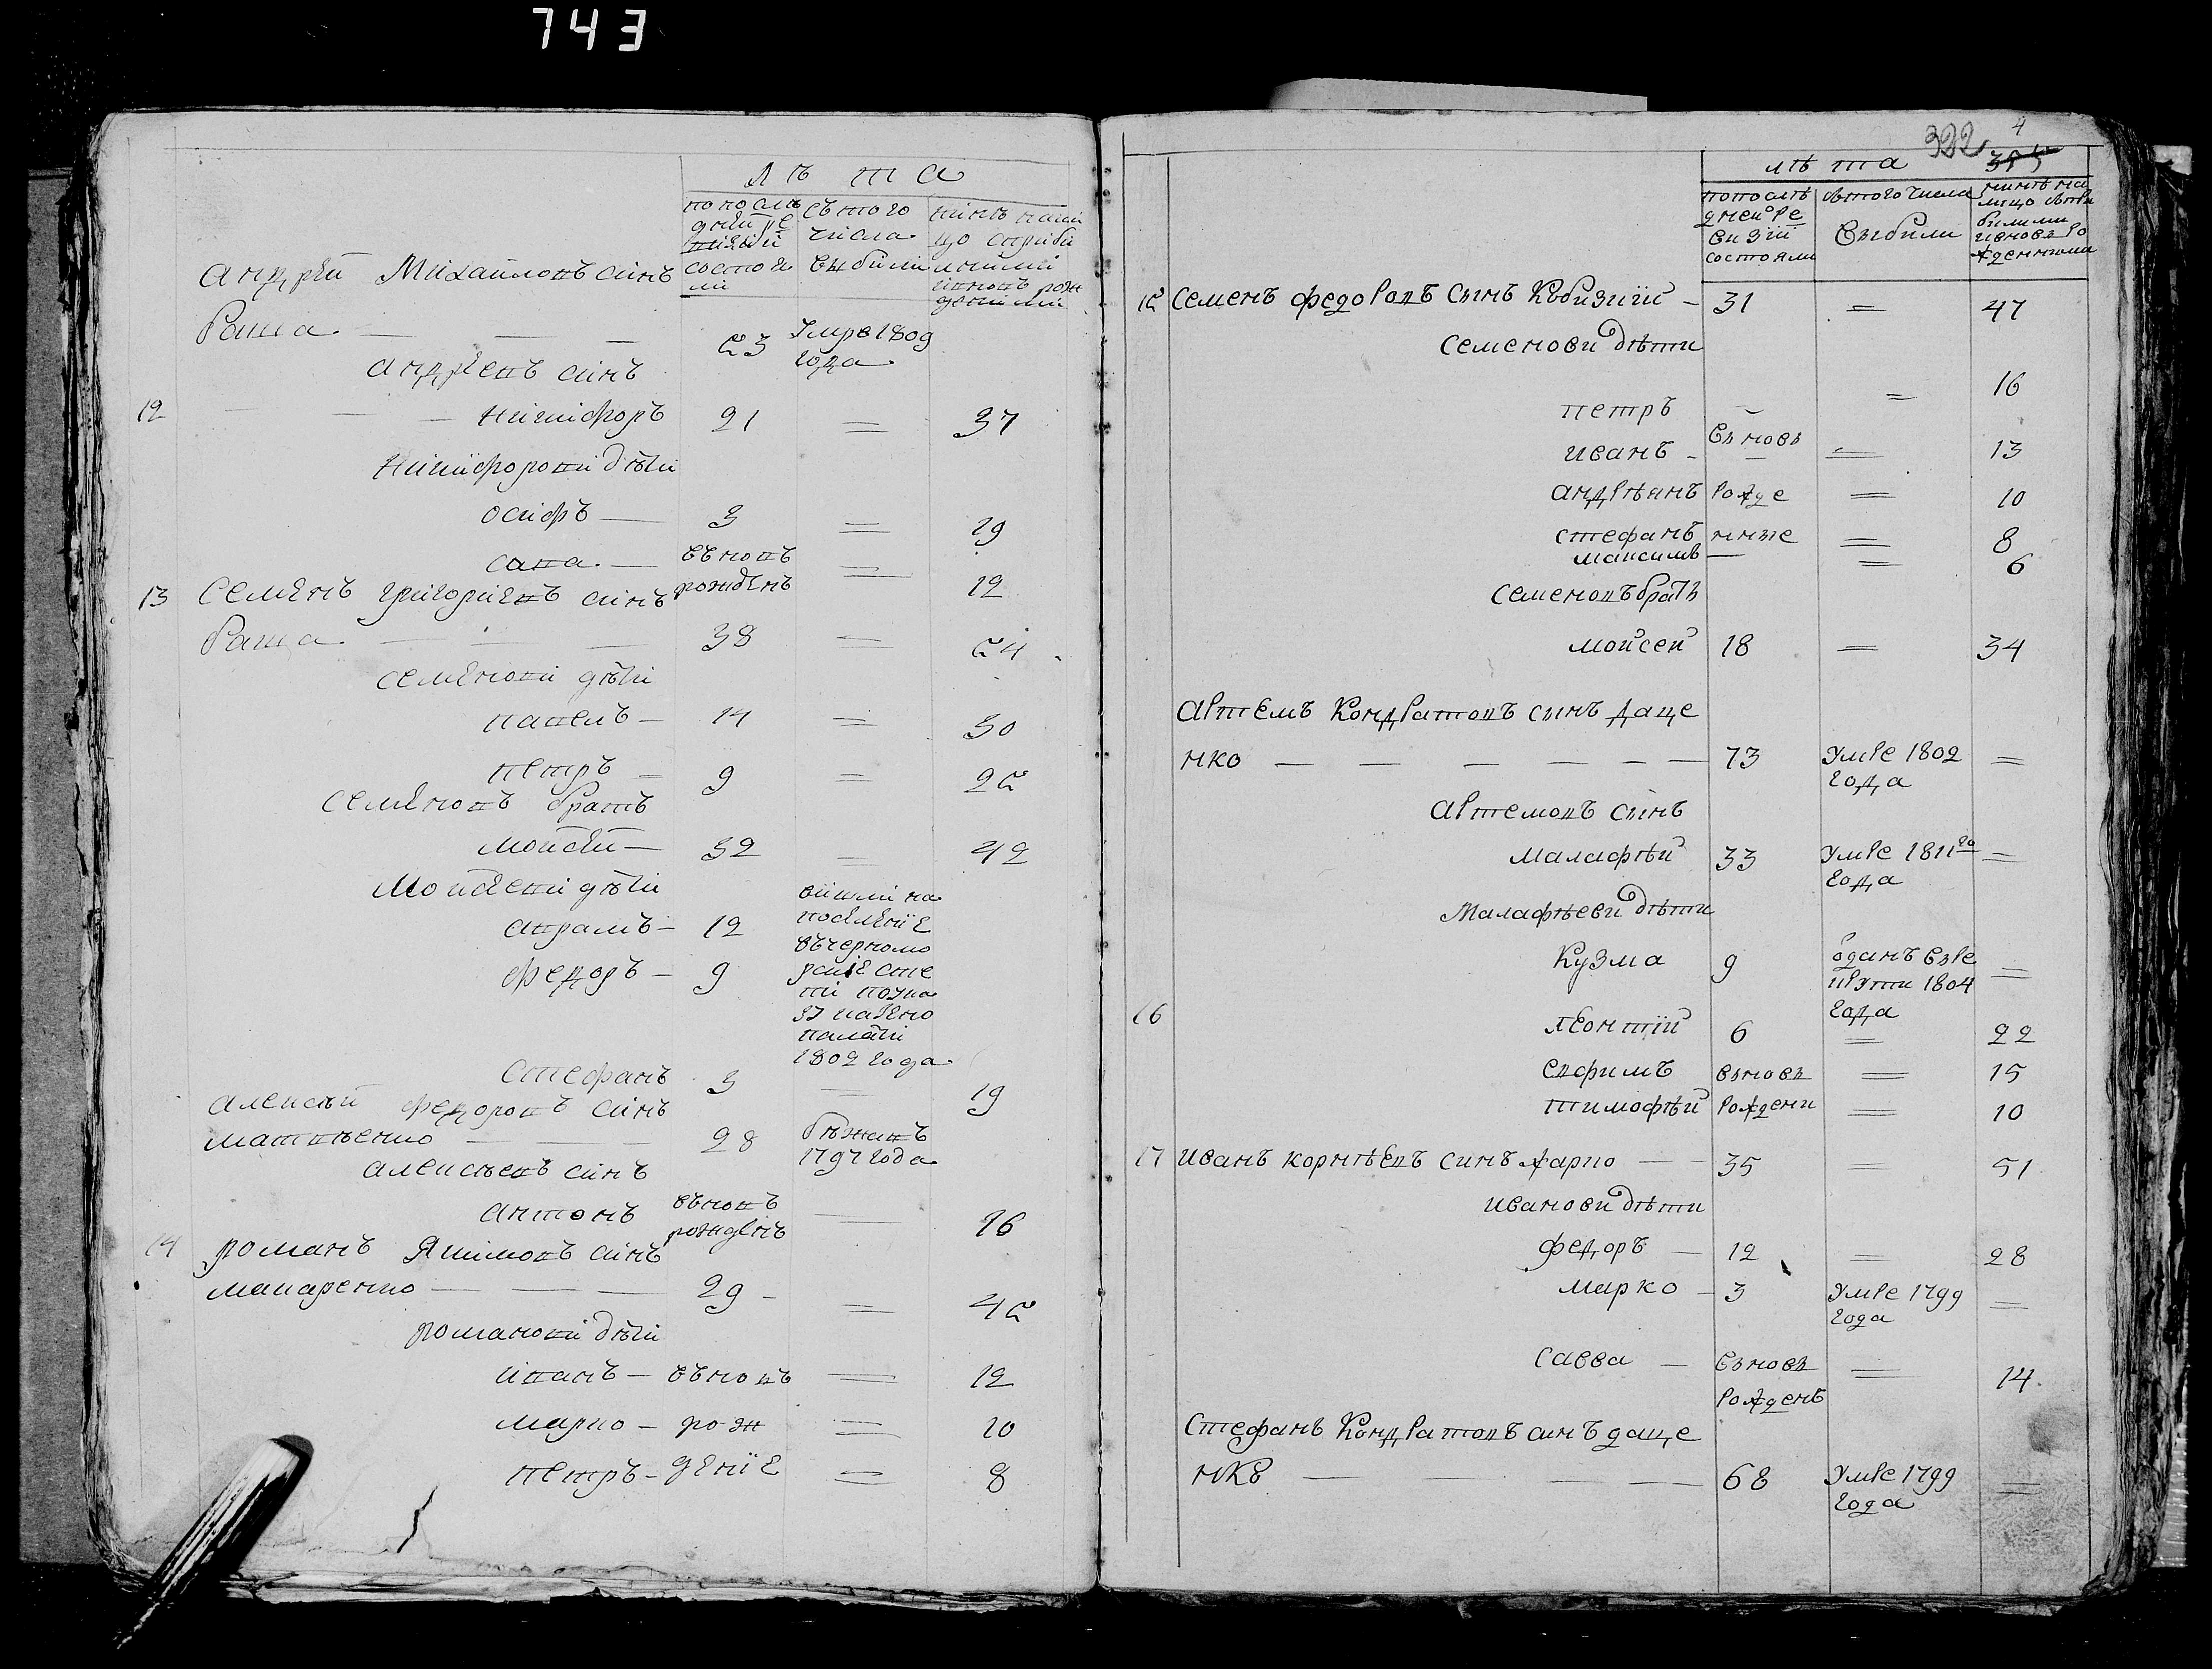 743
лѣта
попослѣ
дней ре
визіи
состоя
ли
съ того
числа
выбыли
нинѣ нали
цо съ приби
лыми
и вновь рож
денними
андрей Михаиловъ синъ
Раша — — —
53
Умре 1809
года
андреевъ синъ
12 — — — никифоръ 21 = 37
никифорови дѣти
осифъ — 3 = 19
сава — въновъ
рожденъ = 12
13 Семенъ григориевъ синъ
Раша — — — 38 = 54
семенови дѣти
павелъ — 14 = 30
петръ — 9 = 25
Семеновъ братъ
мойсей — 32 = 42
Мойсееви дѣти
аврамъ — 12
федоръ — 9
вишли на
поселеніе
въчерномо
рскіе сте
пи поука
зу казено
палати
1802 года
Стефанъ 3 — 19
алексей федоровъ синъ
матвѣенко — — — 28
бѣжавъ
1797 года
алексѣевъ синъ
антонъ въновъ
рожденъ — 16
14 романъ Якимовъ синъ
макаренко — — — 29 — = 45
романови дѣти
иванъ — въновъ = 12
марко — рож = 10
петръ — деніе = 8
322
4
355
лѣта
попослѣ
дней ре
визіи
состояли
сътого числа
выбили
нинѣ на
лицо съпри
билими
ивновь ро
жденними
15 Семенъ федоровъ сынъ Кобизкїй — 31 = 47
Семенови дѣти
петръ — = 16
иванъ — въновъ = 13
андрѣянъ рожде = 10
стефанъ нные = 8
максимъ — = 6
семеновъ братъ
мойсей 18 = 34
Артемъ Кондратовъ сынъ даце
нко — — — — — — 73 Умре 1802
года =
Артемовъ сынъ
малафѣй 33 Умре 1811го
года =
Малафѣеви дѣти
Кузма 9 оданъ въре
крути 1804
года =
16 леонтїй 6 = 22
ефимъ въновъ = 15
тимофѣй рождени = 10
17 иванъ корнѣевъ синъ жарко — — 35 = 51
ивановы дѣти
федоръ — 12 = 28
марко — 3 Умре 1799
года =
савва — въновъ
рожденъ = 14
Стефанъ Кондратовъ синъ даце
нко — — — — 68 Умре 1799
года =